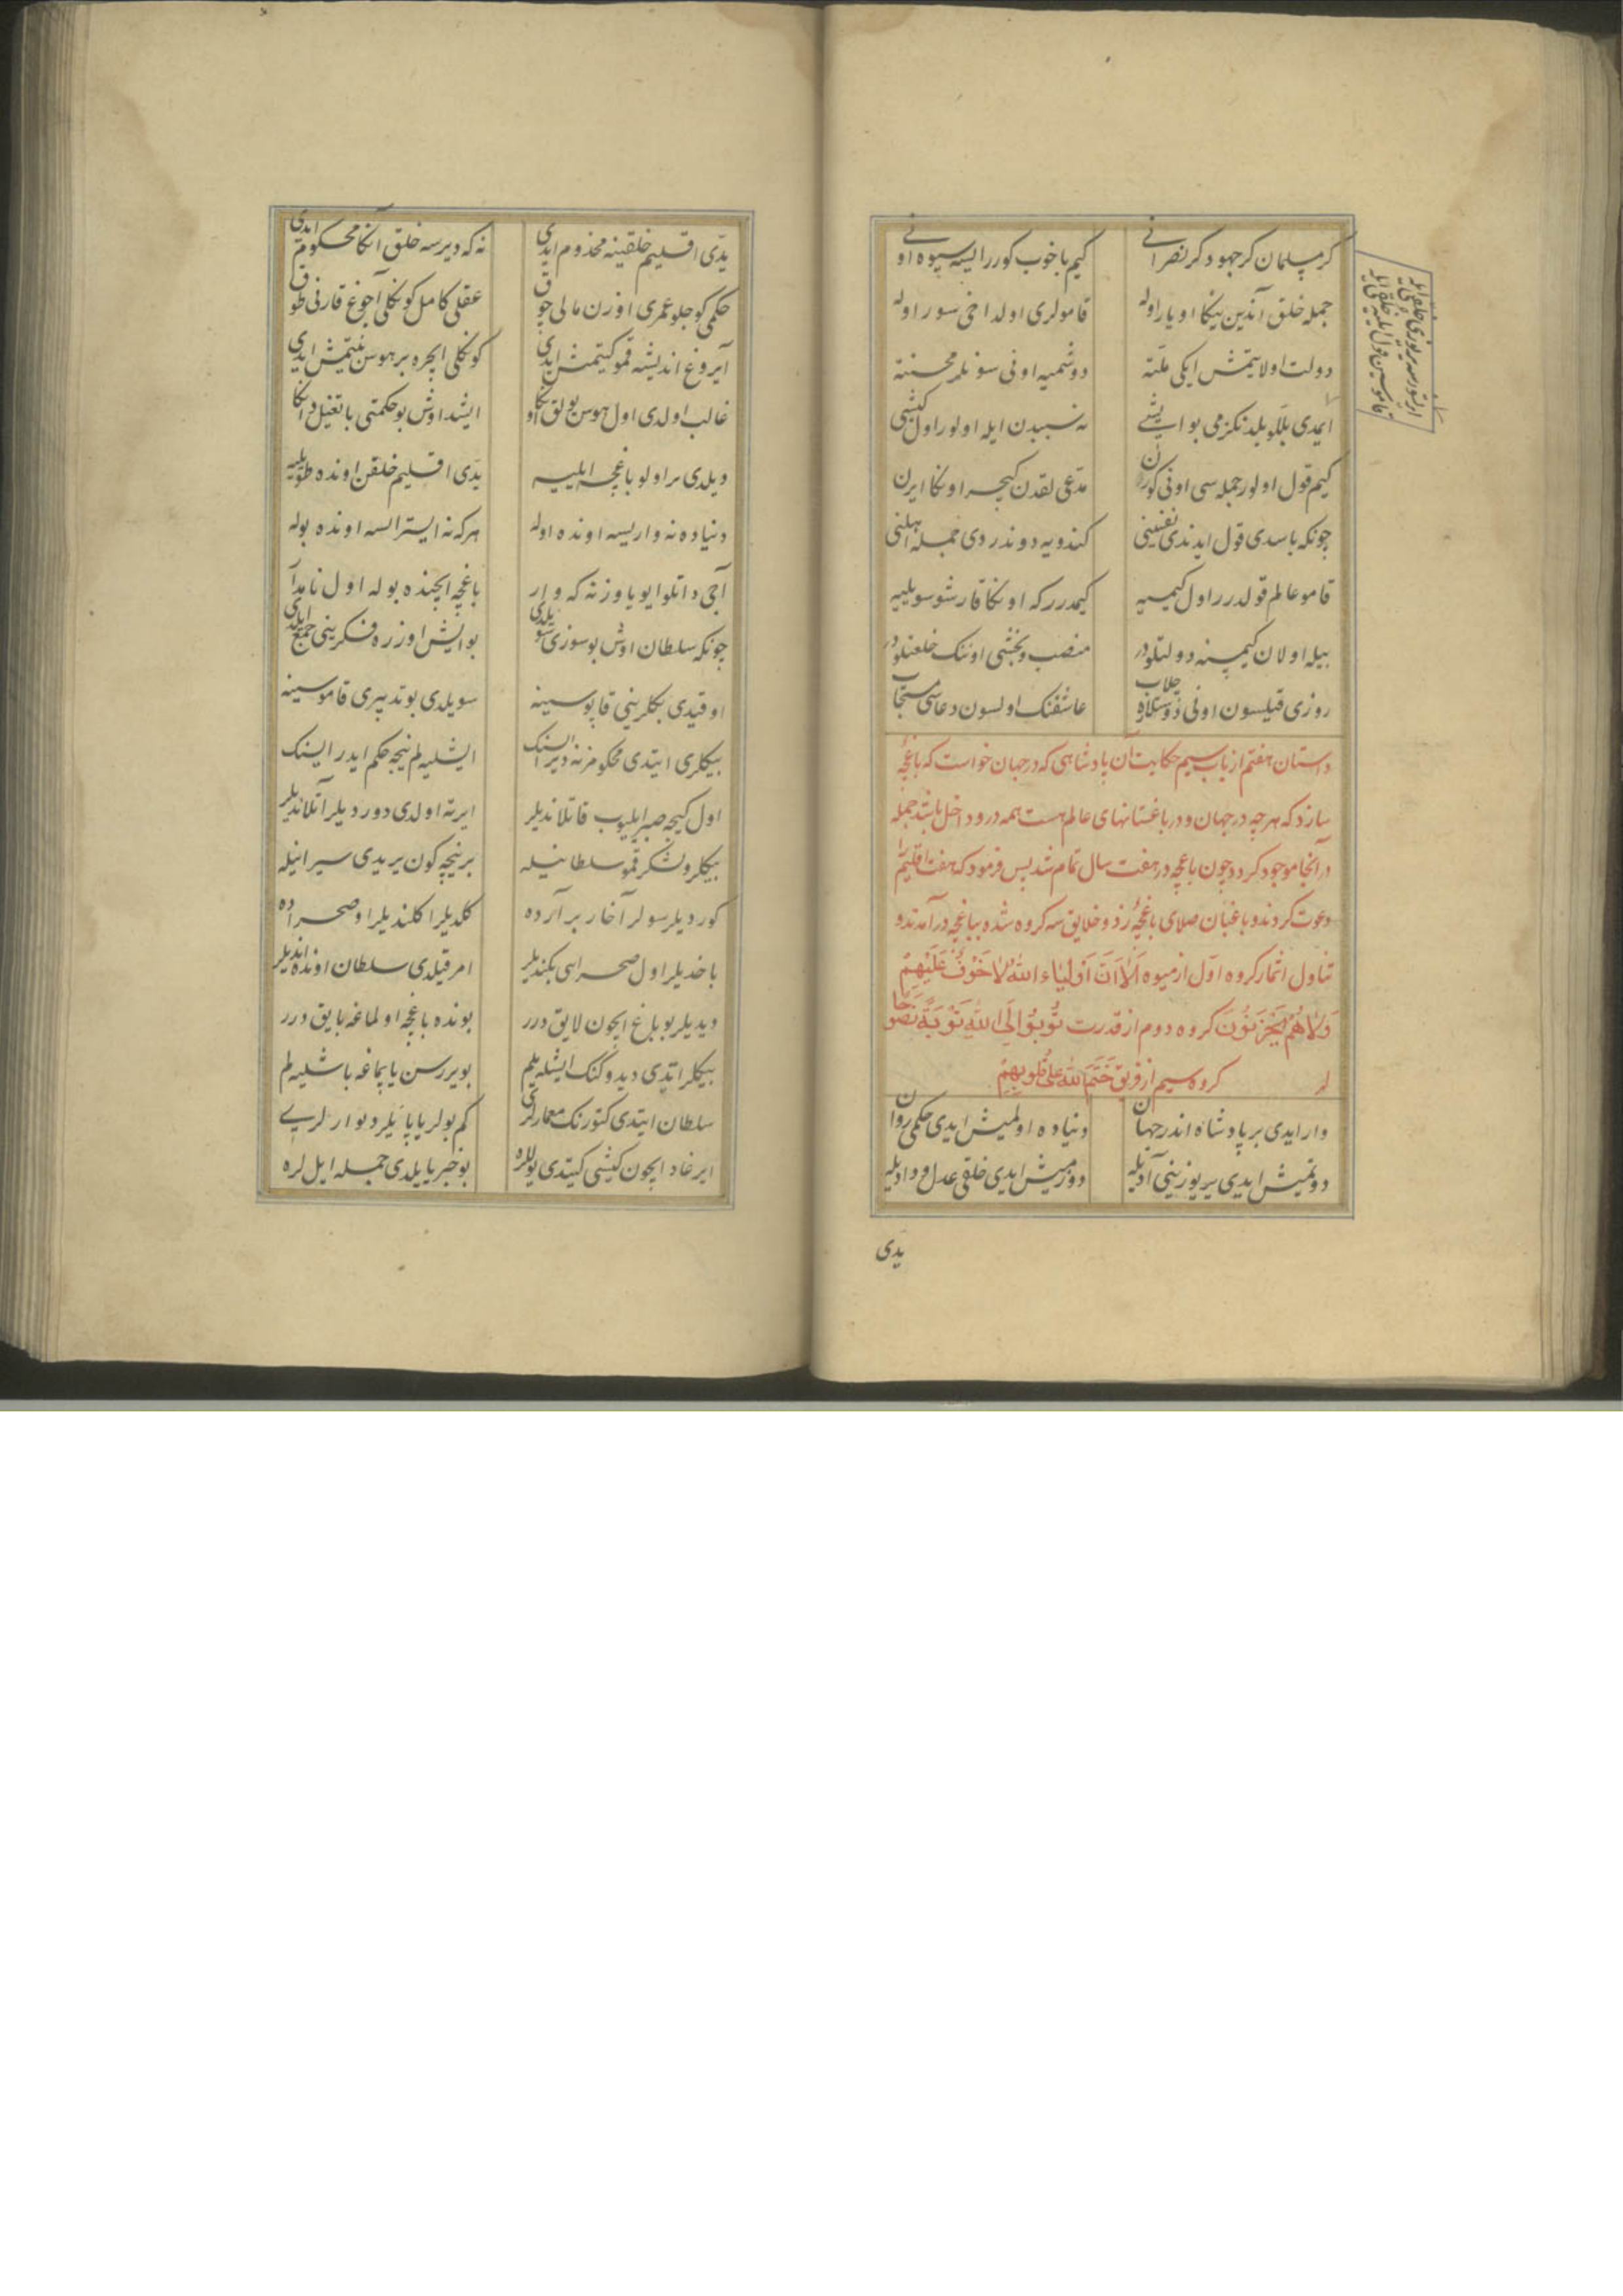 کر مسلمان کر جهود کر نصرانی کیم باخوب کورر ایسه سیوه اونی
جمله خلق آندین یکا اویار اوله قامولری اولدا خی سور اوله
دولت اولا یتمش ایکی ملته دوشمیه اونی سونلر محنته
ایمدی بللو بلدنکزمی بو ایشی نه سببدن ایله اولور اول کیشی
کیم قول اولور جمله سی اونی کورن مدعی لقدن کیچر اونکا ایرن
چونکه باسدی قول ایدندی نفسینی کندویه دوندردی جمله اهلنی
قامو عالم قولدرر اول کیمسیه کیمدرر که اونکا قارشو سویلیه
بیله اولان کیمسنه دولتلودر منصب و بخشی اوننک خلعتلودر
روزی قیلسون اونی دوستلاره چلاب عاشقنک اولسون دعاسی مستجاب
داستان هفتم از باب سیم حکایت آن پادشاهی که در جهان خواست که باغچهٔ
سازد که هر چه در جهان و در باغستانهای عالم هست همه درو داخل باشد جمله
در آنجا موجود کرد و چون باغچه در هفت سال تمام شد پس فرمود که هفت اقلیم را
دعوت کردند و باغبان صلای باغچهٔ زد و خلایق سه کروه شده بباغچه در آمدند و
تناول اثمار کروه اول از میوه اَلاَ اَنَّ اَوْلِیَاءَ اللّٰهِ لاَ خَوْفٌ عَلَیْهِمْ
وَلاَ هُمْ یَحْزَنُونَ کروه دوم از قدرت تُوبُوا اِلَی اللّٰهِ تَوْبَةً نَصُوحًا
کروه سیم از فریق خَتَمَ اللّٰهُ عَلَی قُلُوبِهِمْ
وار ایدی بر پادشاه اندر جهان دنیاده اولمیش ایدی حکمی روان
دوتمیش ایدی یر یوزینی آدیله دوزمیش ایدی خلقی عدل و دادیله
یدی
یدی اقلیم خلقینه مخدوم ایدی نه که دیرسه خلق آنکا محکوم ایدی
حکمی کوجلو عمری اوزن مالی چوق عقلی کامل کونکلی آچوغ قارنی طوق
آیروغ اندیشه قمو کیتمش ایدی کونکلی ایچره بر هوس بتمش ایدی
غالب اولدی اول هوس بولق اونکا ایشد اوش بو حکمتی باتغیل دانکا
دیلدی بر اولو باغچه ایلیه یدی اقلیم خلقن اونده طویلیه
دنیاده نه واریسه اونده اوله هر که نه ایستر ایسه اونده بوله
آجی داتلو ایو یاوز نه که وار باغچه ایچنده بوله اول نامدار
چونکه سلطان اوش بو سوزی سویلدی بو ایش اوزره فکرینی جمع ایلدی
اوقیدی بکلرینی قاپوسینه سویلدی بو تدبیری قاموسینه
بیکلری ایتدی محکومز نه دیرایسنک ایشلیه لم نیجه حکم ایدر ایسنک
اول کیجه صبر ایلیوب قاتلاندیلر ایرته اولدی دوردیلر آتلاندیلر
بیکلر و لشکر قمو سلطانیله بر نیچه کون یریدی سیرانیله
کوردیلر سولر آخار بر آراده کلدیلر اکلندیلر او صحراده
باخدیلر اول صحرایی بکندیلر امر قیلدی سلطان اونده ایندیلر
دیدیلر بو باغ ایچون لایق درر بونده باغچه اولماغه بایق درر
بیکلر ایتدی دیدوکنک ایشلیه یلم بویررسن یاپماغه باشلیه لم
سلطان ایتدی کتورنک معمارلری کم بولر یاپا یلر دیوارلری
ایرغاد ایچون کیشی کیتدی یوللره بو خبر یایلدی جمله ایل لره